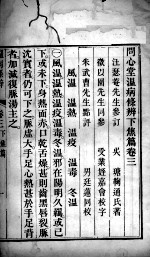 問心堂溫病條辨下焦篇卷三
汪瑟菴先生參訂 吳瑭鞠通氏著
徵以園先生同參 受業姪嘉會校字
朱武曹先生點評 男廷蓮同校
風溫 溫熱 溫疫 溫毒 冬溫
㊀風溫溫熱溫疫溫毒冬溫邪在陽明久羈或已
下或未下身熱面赤口乾舌燥甚則齒黑唇裂脈
沈實者仍可下之脈虛大手足心熱甚於手足背
者加減復脈湯主之